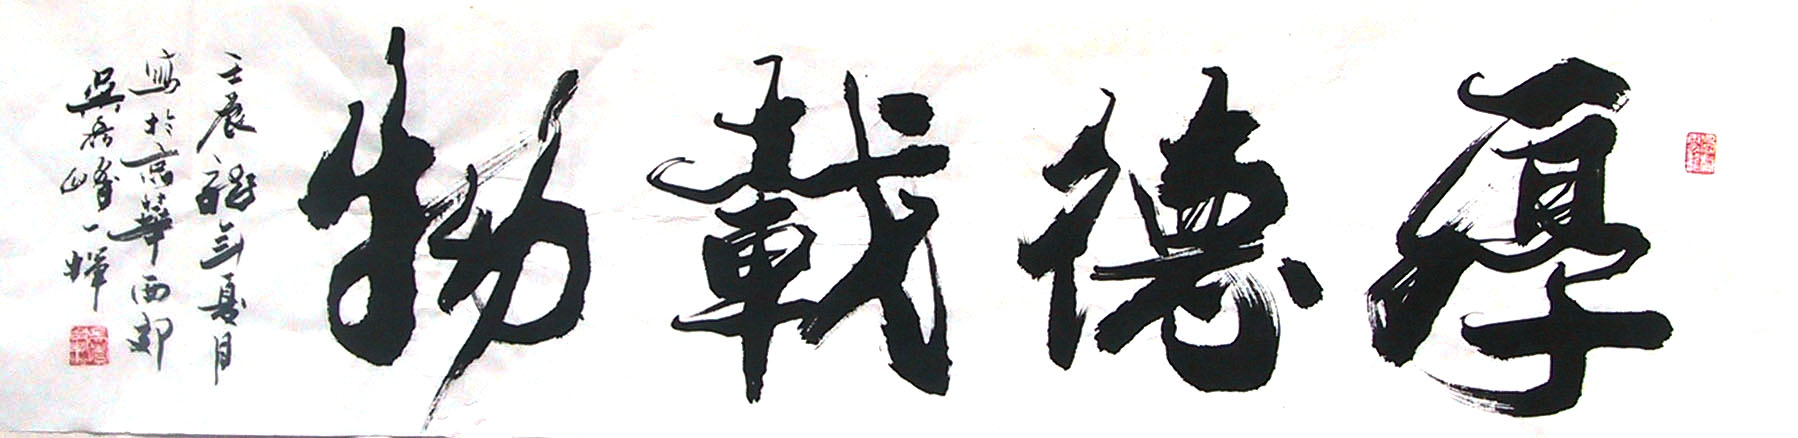 厚德載物
壬辰龍年夏月
寫於京華西郊
吳岳峰一揮